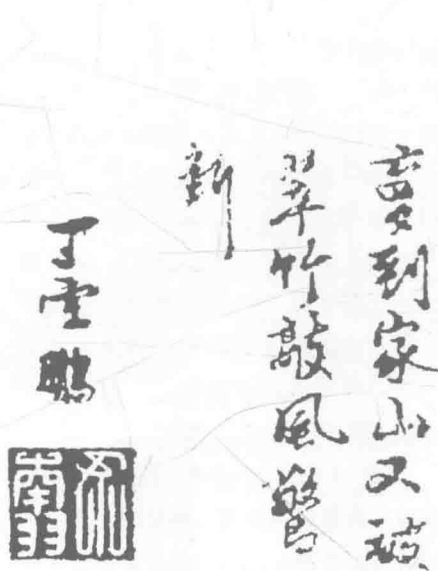 夢到家山又被
翠竹敲風驚
新
丁雲鵬